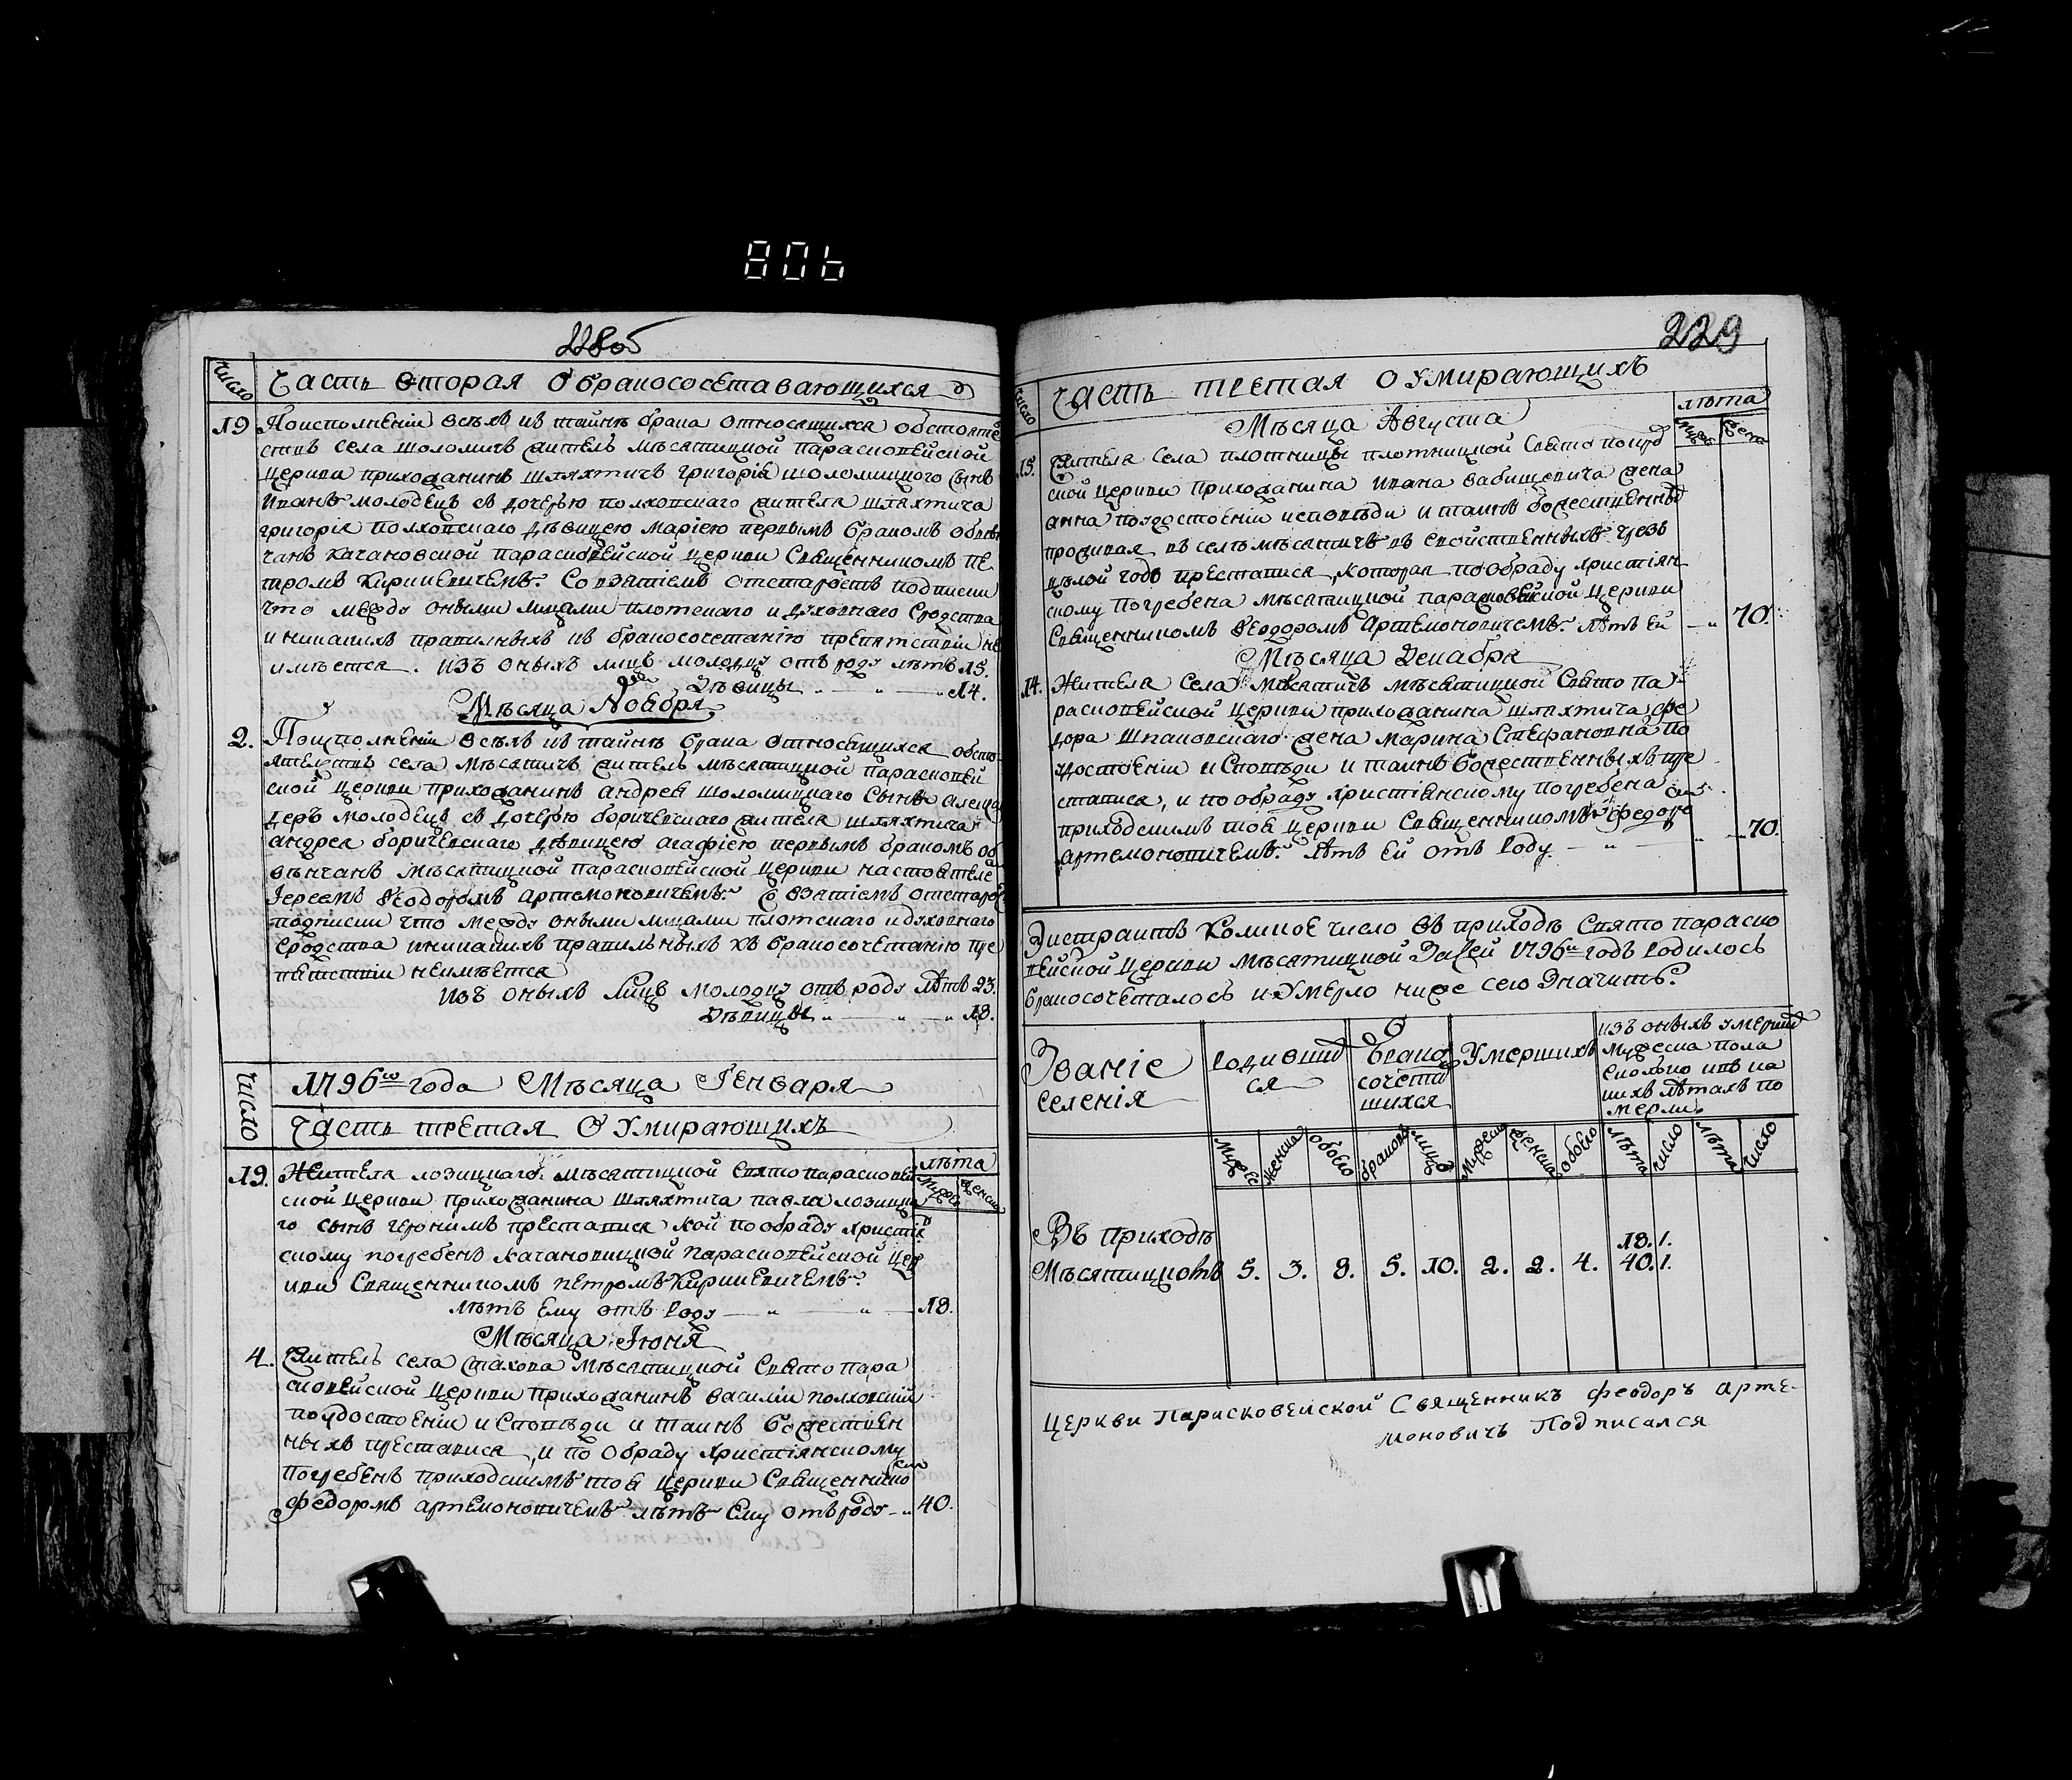 806
228об
число
Часть вторая О бракососетавающихся
19 По исполненіи всѣхъ къ тайнѣ брака относящихся обстояте
ствъ села Шоломичъ житель мѣсятицкой параскевейской
церкви прихожанинъ шляхтичъ григорія шоломицкого сынъ
Иванъ молодецъ съ дочерью полховскаго жителя шляхтича
григорія полховскаго дѣвицею Маріею первымъ бракомъ обвѣн
чанъ качановской параскевейской церкви Священникомъ Пе
тромъ Кирикевичемъ. Со взятіемъ отстаростъ подписки
что между оными лицами плотскаго и духовнаго сродства
и никакихъ правильныхъ къ бракосочетанію препятствіи не
имѣется. изъ оныхъ лицъ молодцу отъ роду лѣтъ 19.
Дѣвицы " — " — " 14.
Мѣсяца Ноября
2. По исполненіи всѣхъ къ тайнѣ брака относящихся обсто
ятельствъ села Мѣсятичъ житель мѣсятицкой параскевей
ской церкви прихожанинъ андрея шоломицкаго Сынъ алекса
деръ молодецъ съ дочерью боричевскаго жителя шляхтича
андрея боричевскаго дѣвицею агафіею первымъ бракомъ об
вѣнчанъ мѣсятицкой параскевейской церкви настоятеле
Іереемъ Ѳеодоромъ Артемоновичемъ. Со взятіемъ отстарос
подписки что между оными лицами плотскаго и духовнаго
сродства и никакихъ правильныхъ къ бракосочетанію пре
пятствіи неимѣется
изъ оныхъ Лицъ молодцу отъ роду Лѣтъ 23.
Дѣвицы " — " — " 18.
число
1796го года Мѣсяца Генваря
Часть третая О Умирающихъ
лѣта
Мужес женска
19. Жителя лозицкаго мѣсятицкой свято параскевей
ской церкви прихожанина шляхтича павла лозицка
го сынъ геронимъ преставися кой по обряду христія
скому погребенъ качановицкой Параскевейской Цер
кви Священникомъ петромъ Кирикевичемъ
лѣтъ Ему отъ Роду — " — " — 18.
Мѣсяца Іюня
4. Житель села стахова Мѣсятицкой Свято пара
скевейской Церкви прихожанинъ василіи полховскій
по удостоеніи исповѣди и таинъ божествен
ныхъ преставися, и по обряду христіянскому
погребенъ приходскимъ тоя церкви Священнико
Федоромъ артемоновичемъ лѣтъ Ему отъ роду — " 40.
229
число
Часть третая О Умирающихъ
лѣта
Мужес женска
Мѣсяца Августа
15. Жителя Села плотницы плотницкой Свято покров
ской церкви прихожанина Ивана бабицевича жена
анна по удостоеніи исповѣди и таинъ божественныхъ
проживая въ селѣ мѣсятичъ въ свойственныхъ чрезъ
цѣлой годъ преставися, которая по обряду христіян
скому погребена мѣсятицкой параскевейской Церкви
Священникомъ Ѳеодоромъ Артемоновичемъ. Лѣтъ Ей — " 70.
Мѣсяца Декабря
14. Жителя Села Мѣсятичъ мѣсятицкой Свято па
раскевейской Церкви прихожанина шляхтича фе
дора Шпаковскаго жена Марина Стефановна по
удостоеніи исповѣди и таинъ божественныхъ пре
ставися, и по обряду христіянскому погребена
приходскимъ тоя Церкви Священникомъ Федоро
артемоновичемъ. Лѣтъ Ей отъ Роду — " — " — 70.
Экстрактъ Коликое число въ приходѣ Свято параско
вейской Церкви Мѣсятицкой За сей 1796й годъ родилось
бракосочеталось и умерло ниже сего Значитъ.
Званіе селенія
родивших ся
Брако сочета шихся
Умершихъ
изъ оныхъ умерших мужеска пола сколько въ ка кихъ лѣтахъ по мерли
Мужес женска обоего браковъ лицъ Мужеска женска обоего лѣта число лѣта число
Въ приходѣ 18. 1.
Мѣсятицкомъ 5. 3. 8. 5. 10. 2. 2. 4. 40. 1.
Церкви Парасковейской Священникъ Феодоръ Арте-
моновичъ Подписался